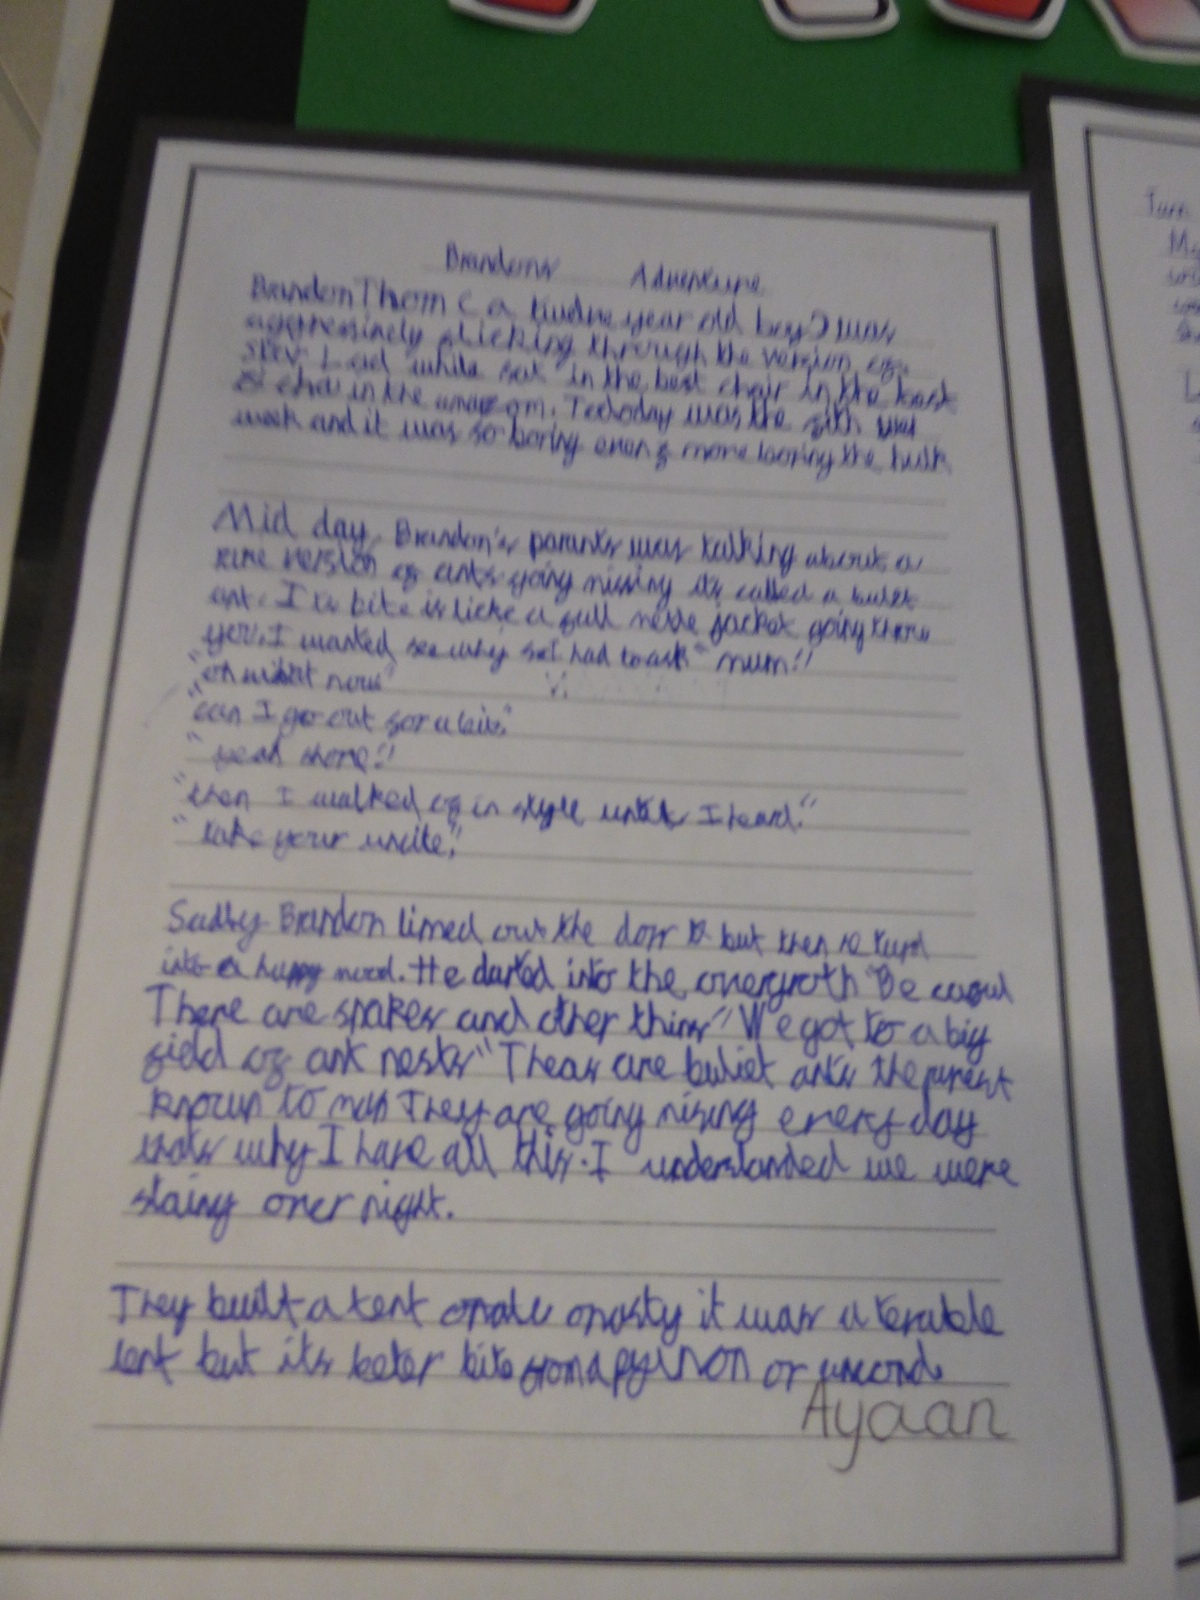 Brandons Adventure
Brandon Thom ( a twelve year old boy) was
aggressively flicking through the version of
while sat in the best chair in the best
in the was the
week and it was so boring even more boring the
Mid day, Brandon's parants was talking about a
rare version of ants going missing its called a bulet
ant. Its bite is licke a full jacket going throu
you. I wanted see why so I had to ask "mum!!
"oh what now"
"can I go out for a bit"
"yeah shore!!
"then I walked of in style until I heard."
"take your uncile"!
Sadly Brandon limed out the dorr but then
into a happy mood. He darted into the overgroth "Be
There are snakes and other thins" We got to a big
field of ant nests" Theas are buliet ants the
known to man They are going mising every day
thats why I have all this. I understanded we were
staing over night.
They built a tent it was a terable
tent but its beter bite from a python or
Ayaan
Turn